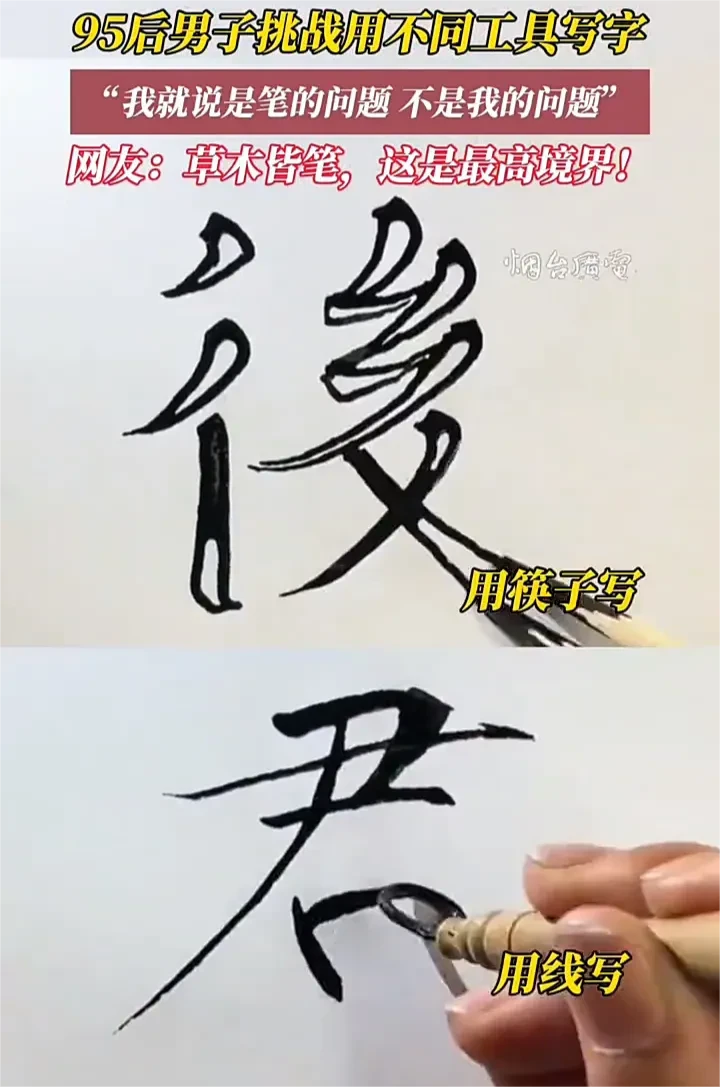 95后男子挑战用不同工具写字
“我就说是笔的问题 不是我的问题”
网友：草木皆笔，这是最高境界！
烟台廣電
後
用筷子写
君
用线写